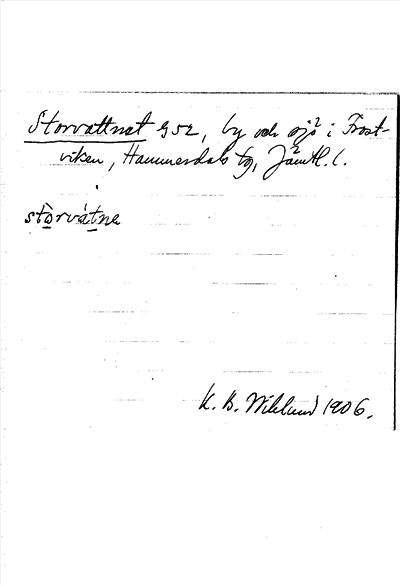 Storvattnet G52, by och sjö i Frost-
viken, Hammerdals tg, Jämtl. l.
stòrvátne
K. B. Wiklund 1906.